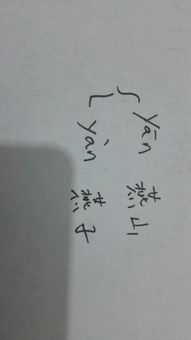 yān 燕山
yàn 燕子